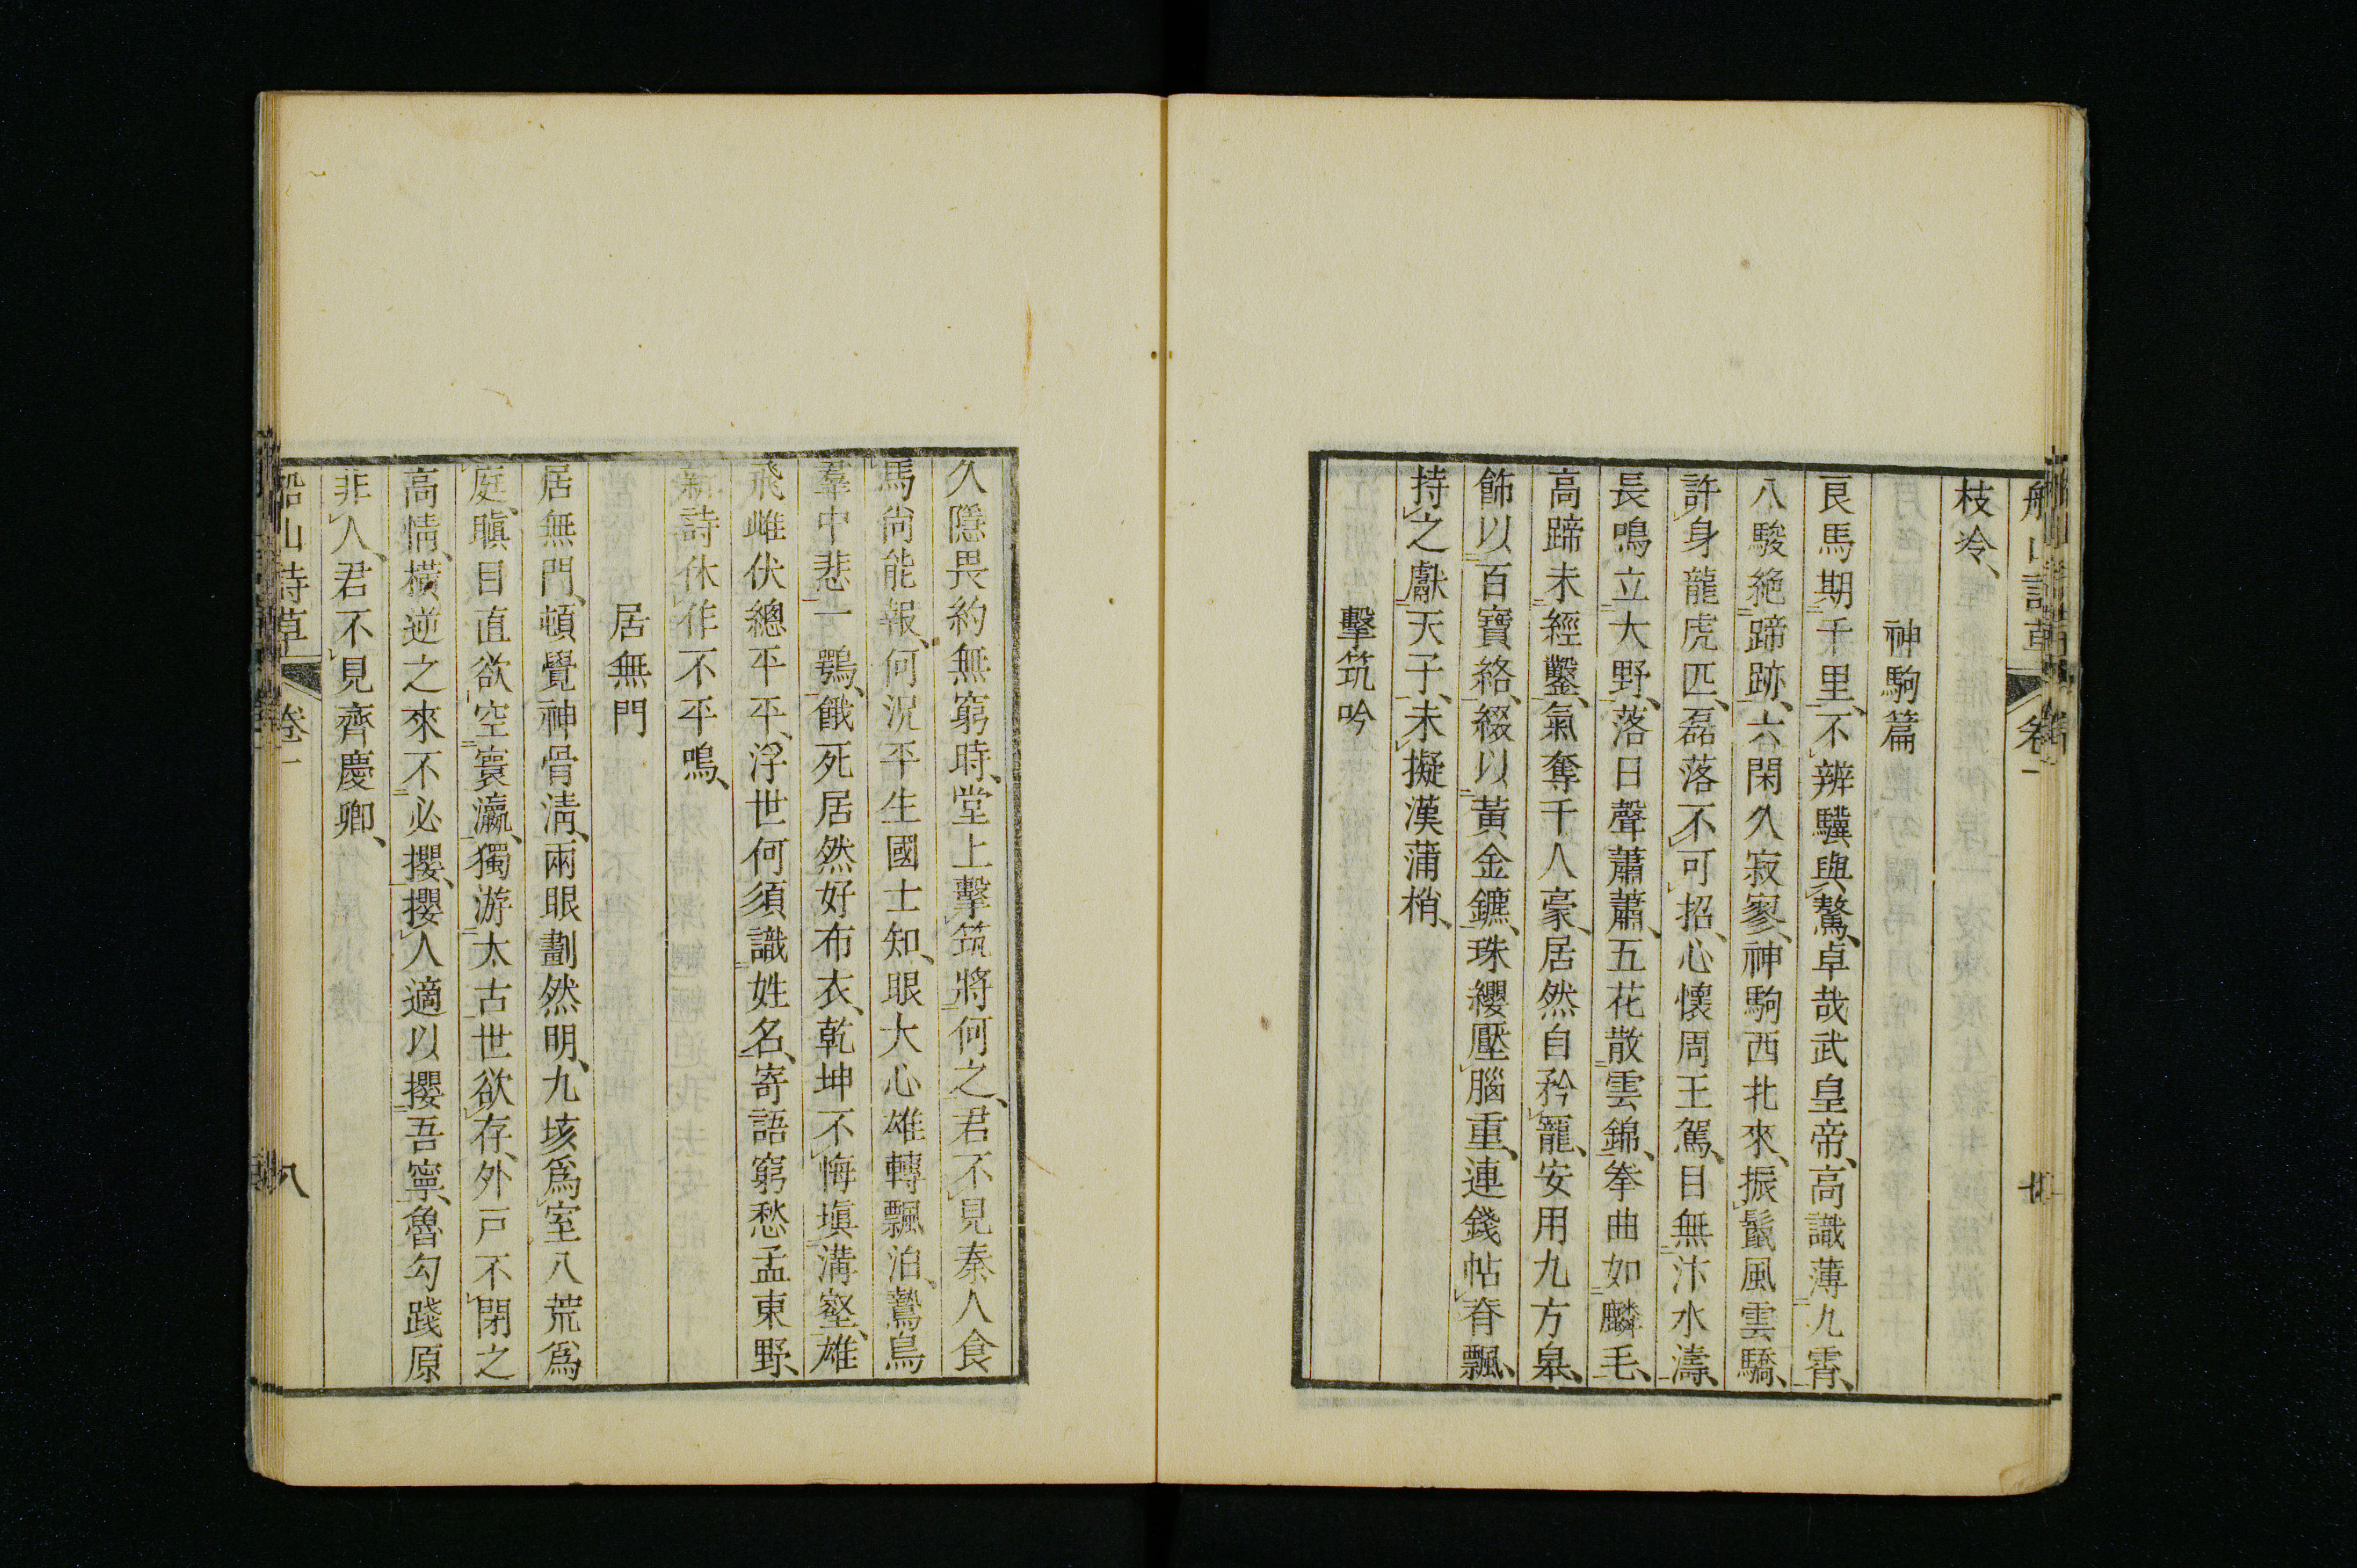 船山詩草 卷一
枝冷、
神駒篇
良馬期千里、不辨驥與驁、卓哉武皇帝、高識薄九霄、
八駿絶蹄跡、六閑久寂寥、神駒西北來、振鬣風雲驕、
許身龍虎匹、磊落不可招、心懷周王駕、目無汴水濤、
長鳴立大野、落日聲蕭蕭、五花散雲錦、拳曲如麟毛、
高蹄未經鑿、氣奪千人豪、居然自矜寵、安用九方皋、
飾以百寶絡、綴以黃金鑣、珠纓壓腦重、連錢帖脊飄、
持之獻天子、未擬漢蒲梢、
擊筑吟
久隱畏約無窮時、堂上擊筑將何之、君不見秦人食
馬尙能報、何況平生國士知、眼大心雄轉飄泊、鷙鳥
羣中悲一鶚、餓死居然好布衣、乾坤不悔塡溝壑、雄
飛雌伏總平平、浮世何須識姓名、寄語窮愁孟東野、
新詩休作不平鳴、
居無門
居無門、頓覺神骨淸、兩眼劃然明、九垓爲室八荒爲
庭、瞋目直欲空寰瀛、獨游太古世欲存、外戸不閉之
高情、橫逆之來不必攖、攖人適以攖吾寧、魯勾踐原
非人、君不見齊慶卿、
船山詩草 卷一 八